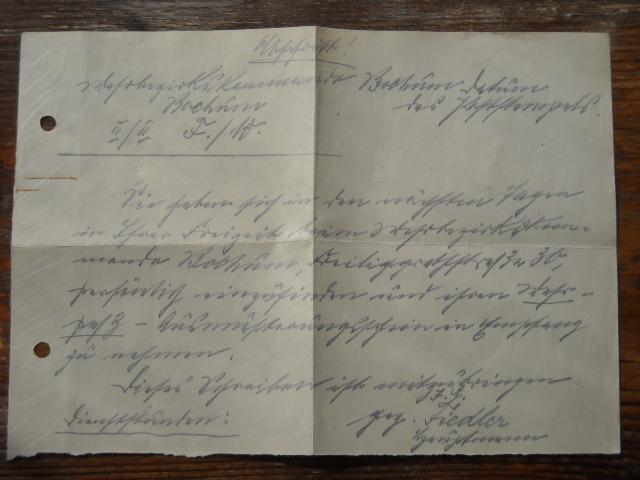 Abschrift!
Wehrbezirkskommando Bochum, Datum
Bochum des Poststempels.
II/II F./W.
Sie haben sich in den nächsten Tagen
in Ihrer Freizeit beim Wehrbezirkskom-
mando Bochum, Freiligrathstraße 30,
persönlich einzufinden und ihren Wehr-
paß - Ausmusterungsschein in Empfang
zu nehmen.
Dieses Schreiben ist mitzubringen.
gez. Fiedler
Dienststunden: Hauptmann